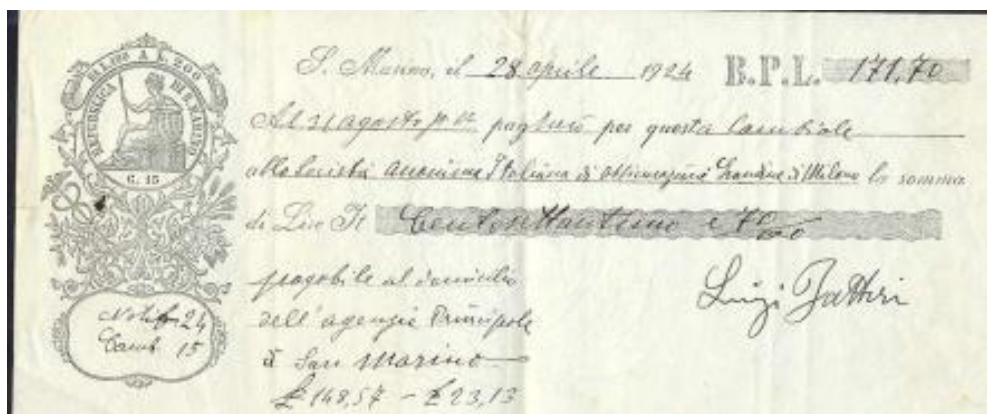 DA L. 100 A L. 200
REPUBBLICA DI S. MARINO
C. 15
S. Marino, il 28 aprile 1924 B.P.L. 171,70
Al 31 agosto p. pagherò per questa Cambiale
alla Società Anonima Italiana di Assicurazioni di Milano la somma
di Lire It Centosettantuno e 70/00
pagabile al domicilio
dell'agenzia Principale
di San Marino
£ 148,57 - £ 23,13
Luigi Zattiri
24
Camb 15